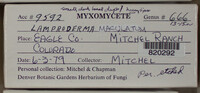 Act # 9592 MYXOMYCETE Genus # 666
LAMPRODERMA MACULATUM
PLACE: EAGLE CO. MITCHEL RANCH
COLORADO 820292
DATE 6/3/79 COLLECTOR MITCHEL
Personal collection: Mitchel & Chapman
Denver Botanic Gardens Herbarium of Fungi